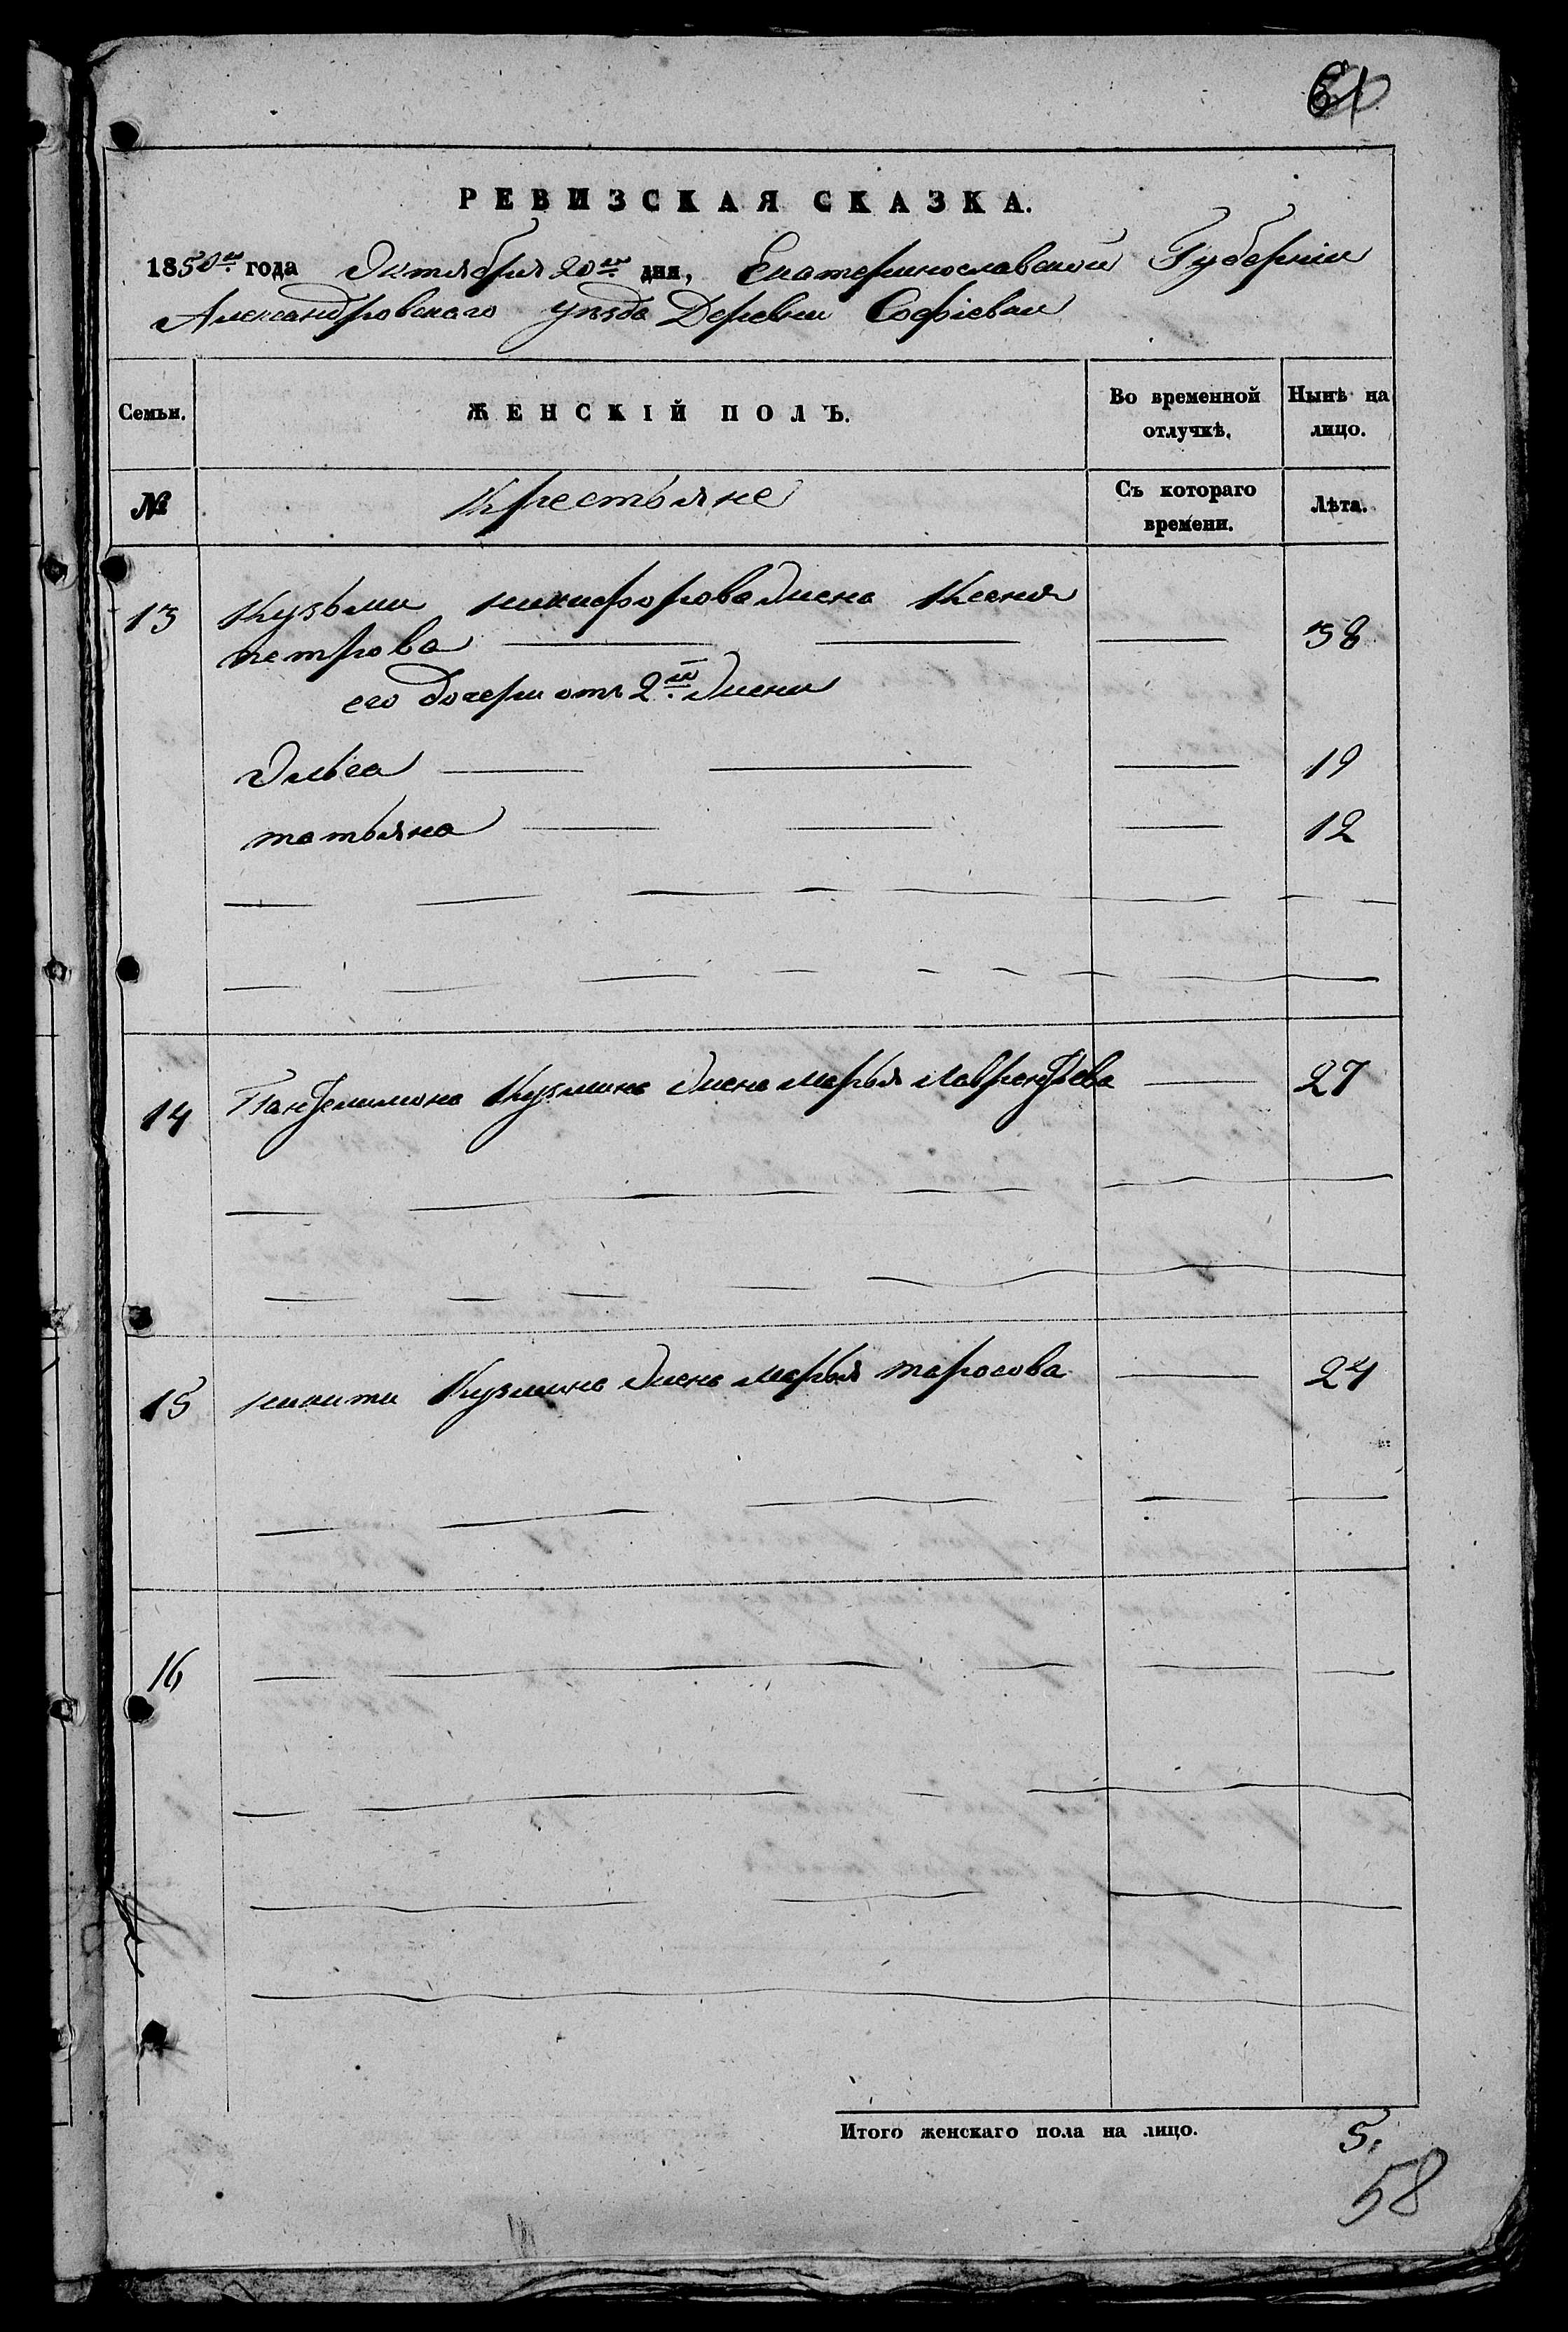 61
РЕВИЗСКАЯ СКАЗКА.
1850го года Октября 20го дня, Екатеринославской Губернии
Александровского уезда Деревни Софиевки
Семьи.
ЖЕНСКІЙ ПОЛЪ.
Во временной отлучкѣ.
Нынѣ на лицо.
№
Крестьяне
Съ котораго времени.
Лѣта.
13 Кузьмы никифорова жена Ксения
петрова 38
его дочери отъ 2й жены
19
татьяна 12
14 Пантелимона Кузмина жена марья Лаврентьева 27
15 никиты Кузмина жена марья тарасова 24
16
Итого женскаго пола на лицо. 5.
58